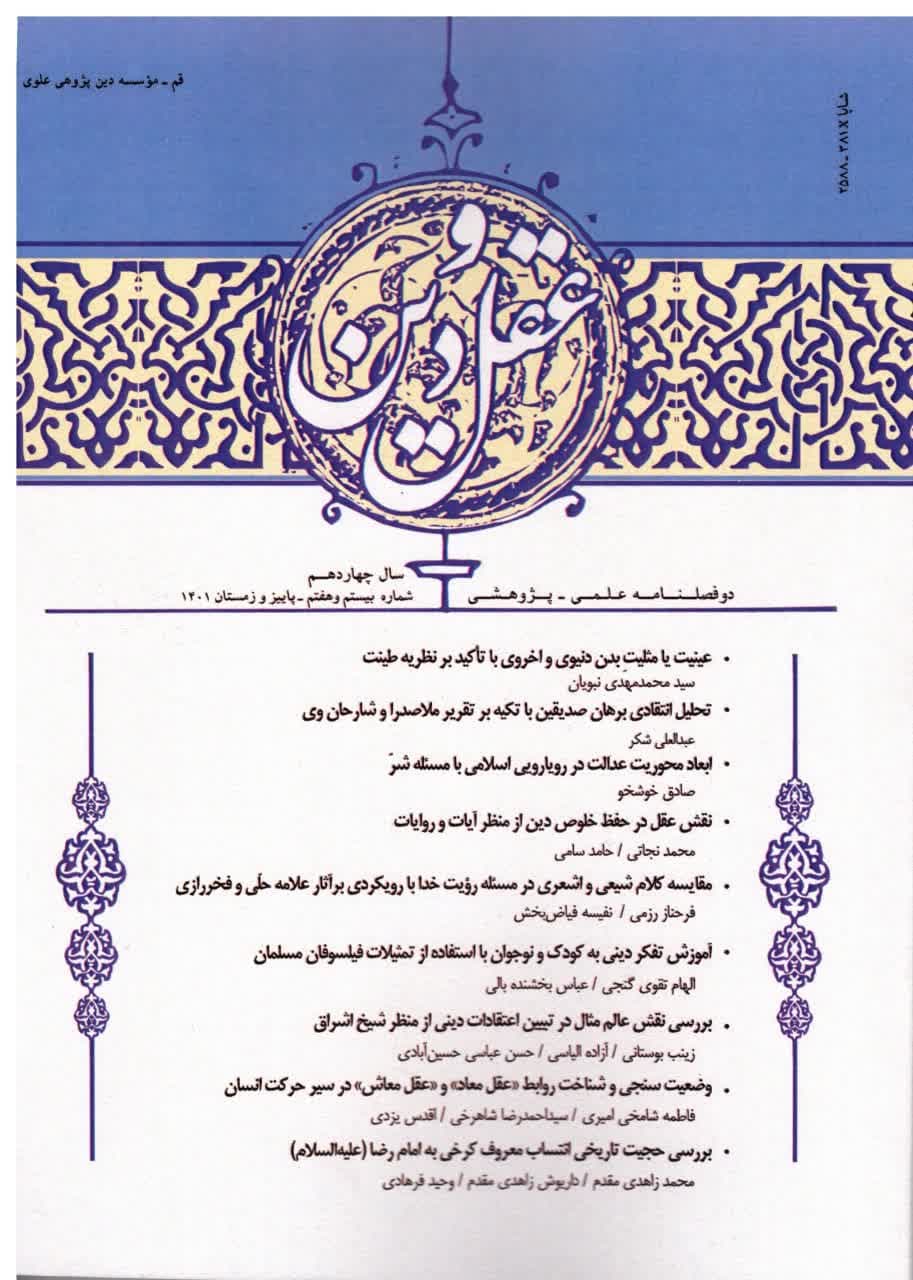 قم ـ مؤسسه دین پژوهی علوی
شاپا ۳۸۱X ـ ۲۵۸۸
عقل و دین
سال چهاردهم
دوفصلنامه علمی ـ پژوهشی
شماره بیستم وهفتم ـ پاییز و زمستان ۱۴۰۱
• عینیت یا مثلیتِ بدن دنیوی و اخروی با تأکید بر نظریه طینت
سید محمدمهدی نبویان
• تحلیل انتقادی برهان صدیقین با تکیه بر تقریر ملاصدرا و شارحان وی
عبدالعلی شکر
• ابعاد محوریت عدالت در رویارویی اسلامی با مسئله شرّ
صادق خوشخو
• نقش عقل در حفظ خلوص دین از منظر آیات و روایات
محمد نجاتی / حامد سامی
• مقایسه کلام شیعی و اشعری در مسئله رؤیت خدا با رویکردی برآثار علامه حلّی و فخررازی
فرحناز رزمی / نفیسه فیاض‌بخش
• آموزش تفکر دینی به کودک و نوجوان با استفاده از تمثیلات فیلسوفان مسلمان
الهام تقوی گنجی / عباس بخشنده بالی
• بررسی نقش عالم مثال در تبیین اعتقادات دینی از منظر شیخ اشراق
زینب بوستانی / آزاده الیاسی / حسن عباسی حسین‌آبادی
• وضعیت سنجی و شناخت روابط «عقل معاد» و «عقل معاش» در سیر حرکت انسان
فاطمه شامخی امیری / سیداحمدرضا شاهرخی / اقدس یزدی
• بررسی حجیت تاریخی انتساب معروف کرخی به امام رضا (علیه‌السلام)
محمد زاهدی مقدم / داریوش زاهدی مقدم / وحید فرهادی